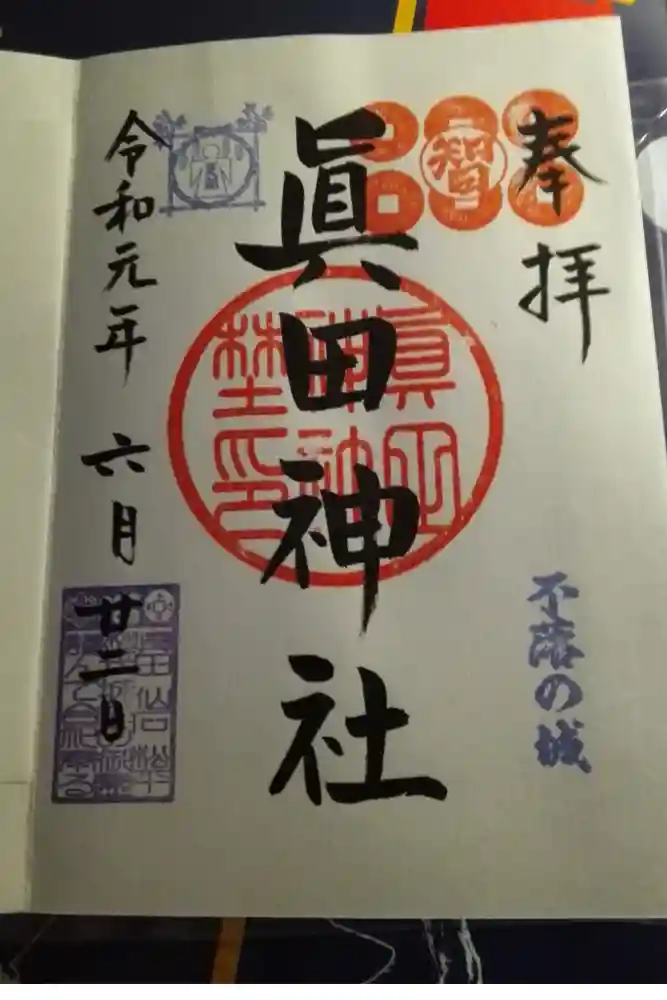 奉拝
智
不落の城
眞田神社
令和元年 六月 廿二日